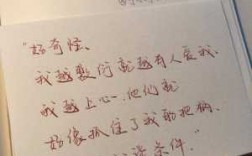 “好奇怪、
我越敷衍就越有人爱我、
我越上心、他们就
好像抓住了我的把柄、
条件。”